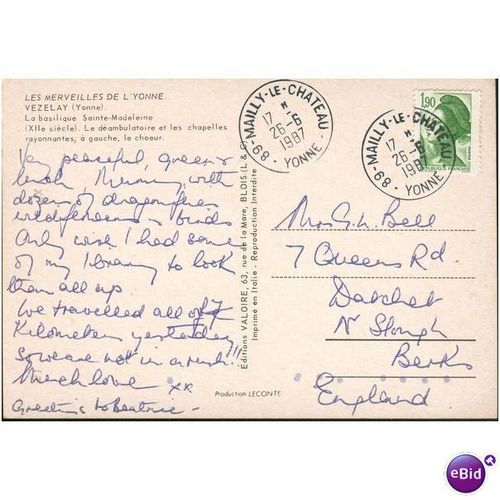 LES MERVEILLES DE L'YONNE.
VEZELAY (Yonne).
La basilique Sainte-Madeleine
(XIIe siècle). Le déambulatoire et les chapelles
rayonnantes, à gauche, le choeur.
Very peaceful, green &
lush, Humming with
dozens of dragonflies
wildflowers & birds
Only wish I had some
of my library to look
them all up
We travelled all of 7
Kilometers yesterday
So we are not in a rush!!
Much love
xx
Greetings to Beatrice -
Editions VALOIRE, 63, rue de la Mare, BLOIS (L & C)
Imprimé en Italie - Reproduction Interdite
Production LECONTE
89-MAILLY-LE-CHATEAU
17 H
26-6
1987
YONNE
89-MAILLY-LE-CHATEAU
17 H
26-6
1987
YONNE
1,90
Mrs G.L. Bell
7 Queens Rd.
Datchet
Nr Slough
Berks
England
eBid